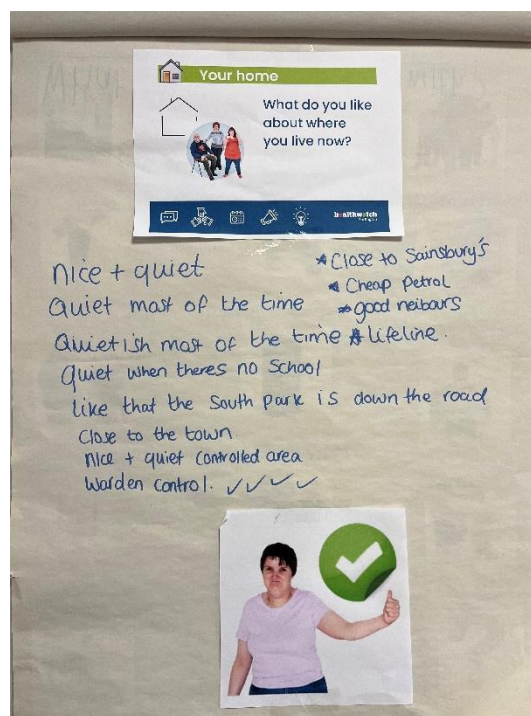 Your home
What do you like
about where
you live now?
healthwatch
nice + quiet
Quiet most of the time
Quietish most of the time
Quiet when theres no School
like that the South park is down the road
Close to the town
nice + quiet controlled area
Warden control. ✓✓✓✓
* Close to Sainsbury's
* Cheap Petrol
* good neibours
* lifeline.